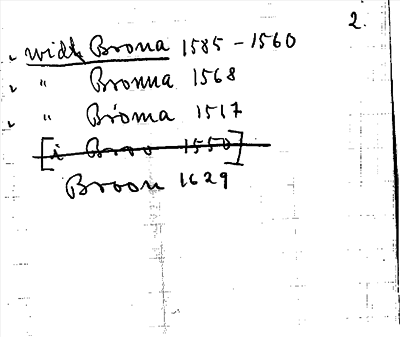 2.
, widh Brona 1585-1560
, " Bronna 1568
, " Broma 1517
[i Broo 1550]
Broon 1629